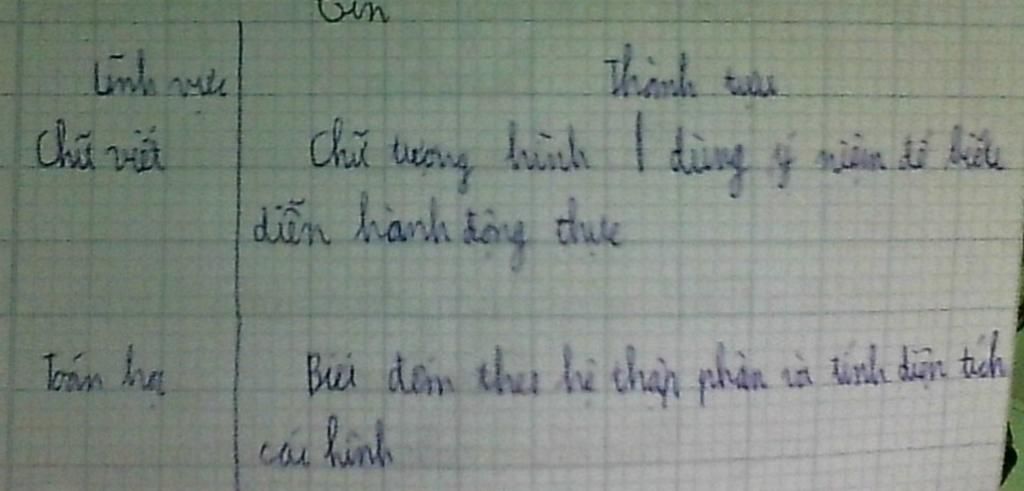 Lĩnh vực Thành tựu
Chữ viết Chữ tượng hình | dùng ý niệm để biểu
diễn hành động thực
Toán học Biết đếm theo hệ thập phân và tính diện tích
các hình